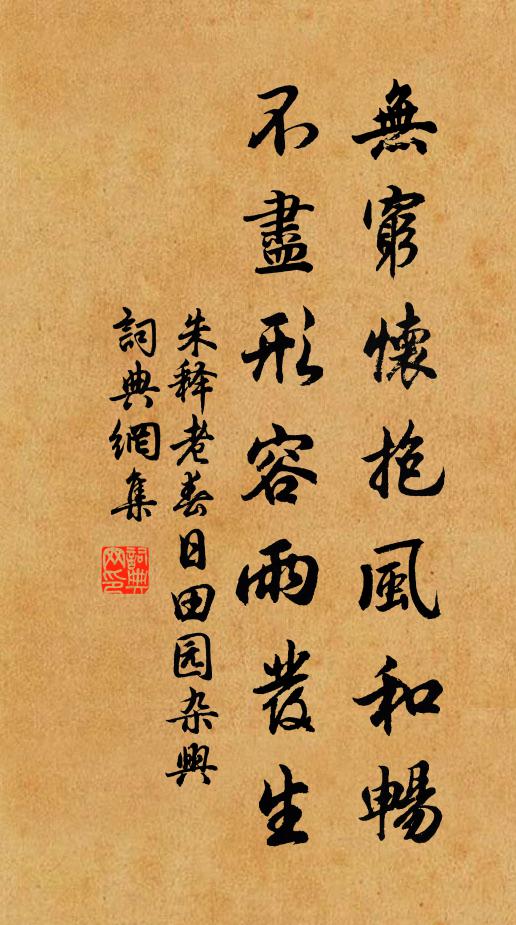 無窮懷抱風和暢
不盡形容雨發生
朱释老春日田园杂興
詞典網集
詞典網印